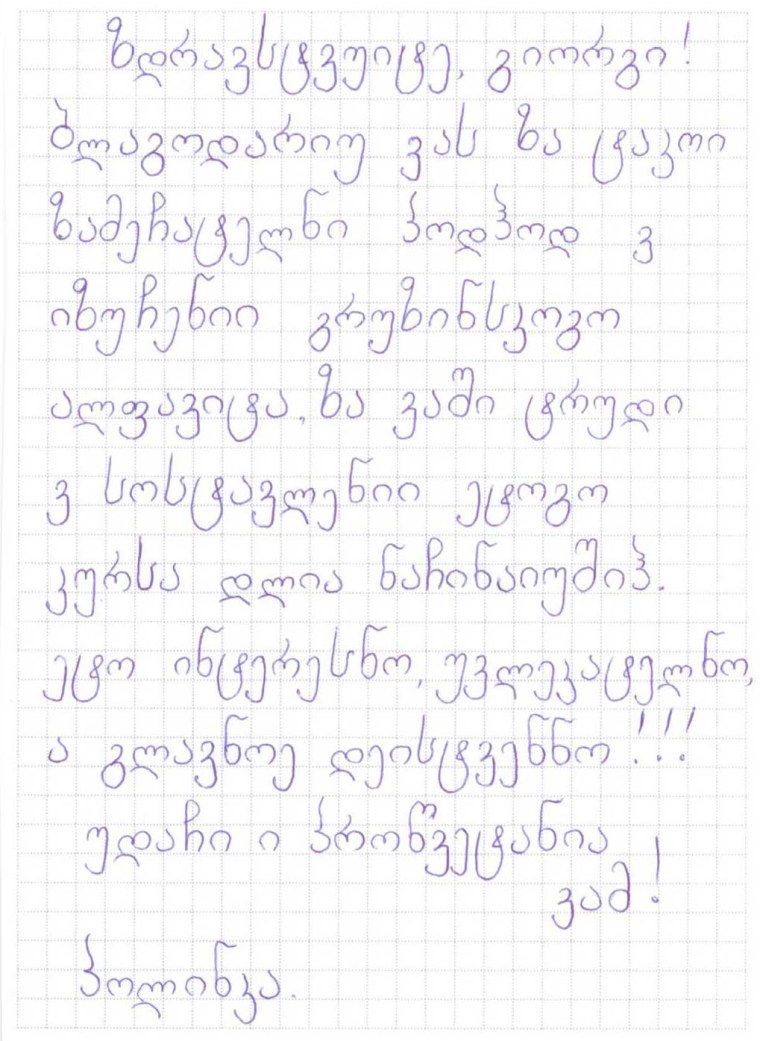 ზდრავსტვუიტე, გიორგი!
ბლაგოდარიუ ვას ზა ტაკოი
ზამეჩატელნი პოდჰოდ ვ
იზუჩენიი გრუზინსკოგო
ალფავიტა, ზა ვაში ტრუდი
ვ სოსტავლენიი ეტოგო
კურსა დლია ნაჩინაიუშიჰ.
ეტო ინტერესნო, უვლეკატელნო,
ა გლავნოე დეისტვენნო!!!
უდაჩი ი პროწვეტანია
ვამ!
პოლინკა.